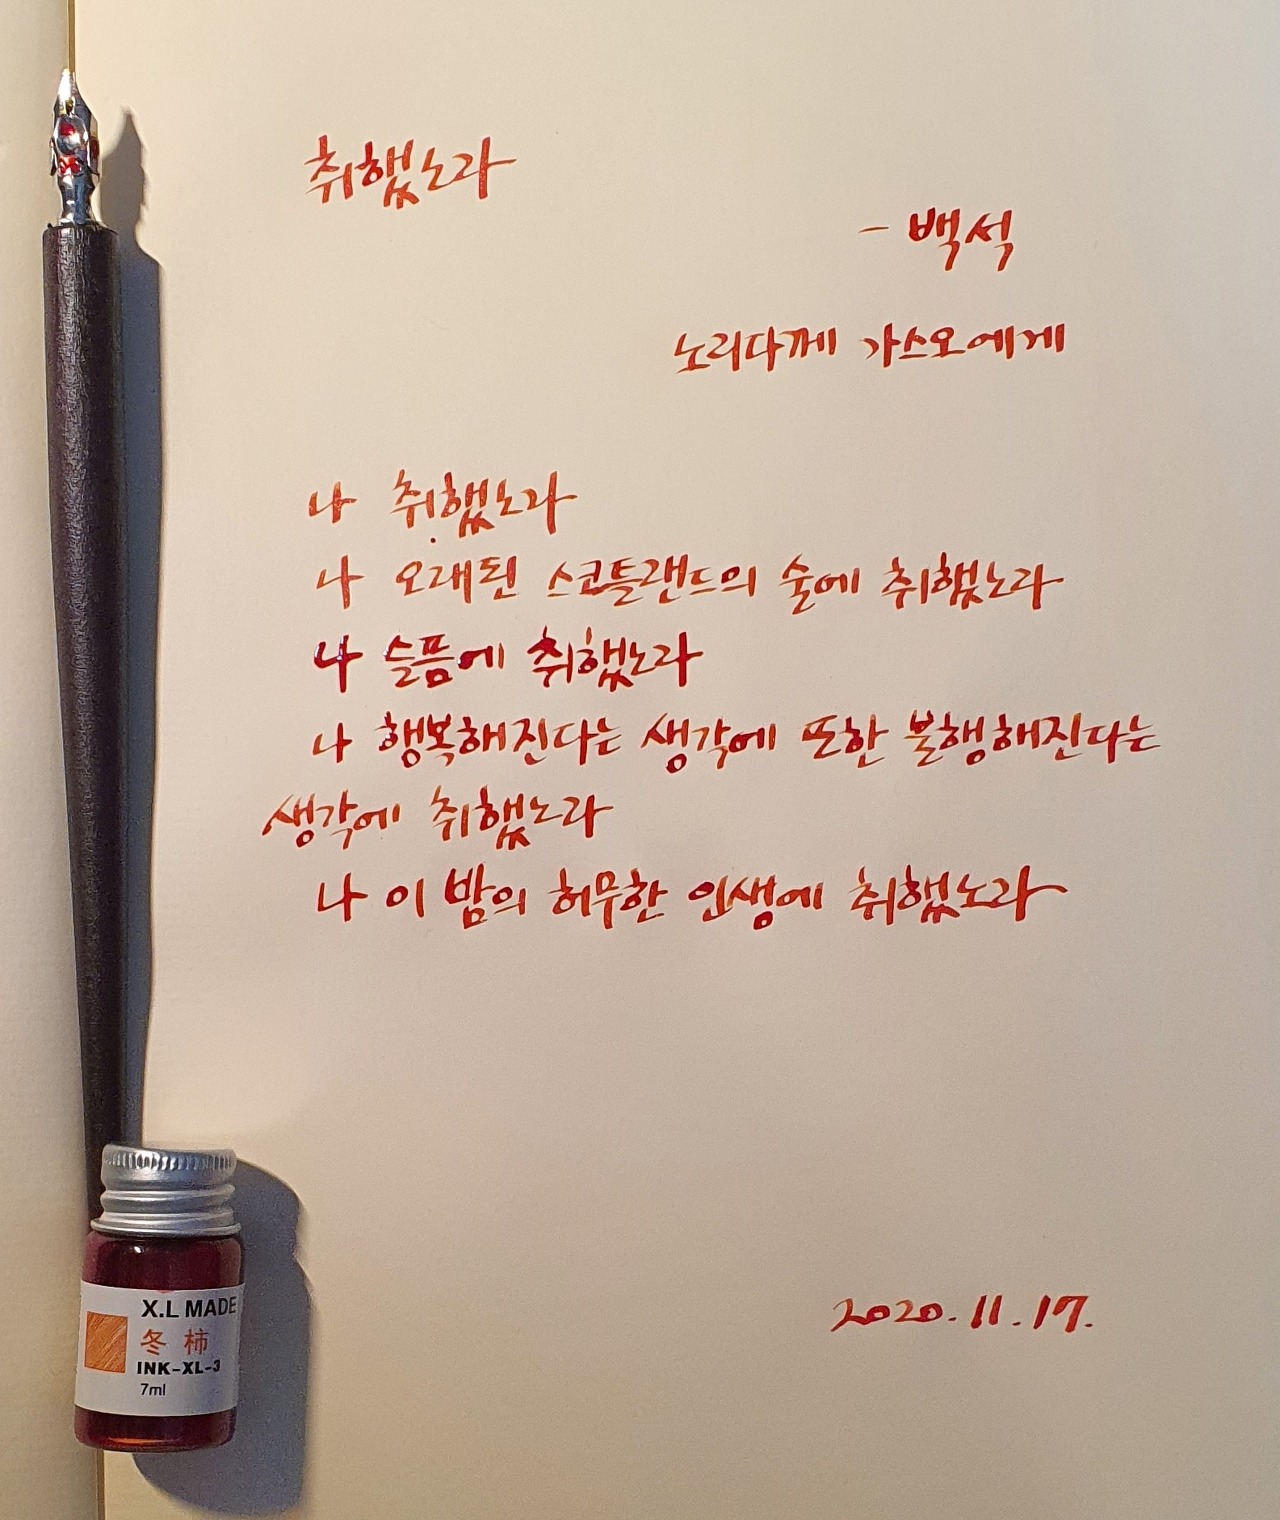 취했노라
- 백석
노리다께 가스오에게
나 취했노라
나 오래된 스코틀랜드의 술에 취했노라
나 슬픔에 취했노라
나 행복해진다는 생각에 또한 불행해진다는
생각에 취했노라
나 이 밤의 허무한 인생에 취했노라
2020.11.17.
X.L MADE
冬柿
INK-XL-3
7ml